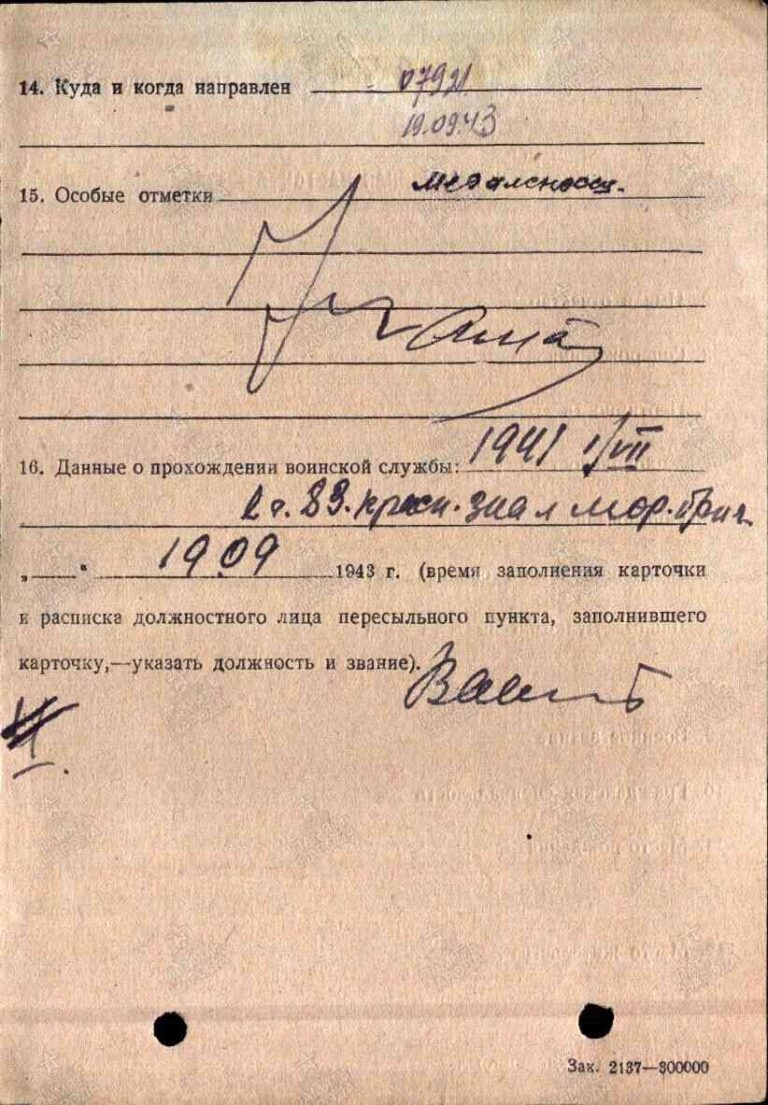 14. Куда и когда направлен 07921
19.09.43
15. Особые отметки
16. Данные о прохождении воинской службы: 1941 1/VII
83. красн. знам мор. бриг.
„ “ 19 09 1943 г. (время заполнения карточки
и расписка должностного лица пересыльного пункта, заполнившего
карточку,—указать должность и звание).
Зак. 2137—300000